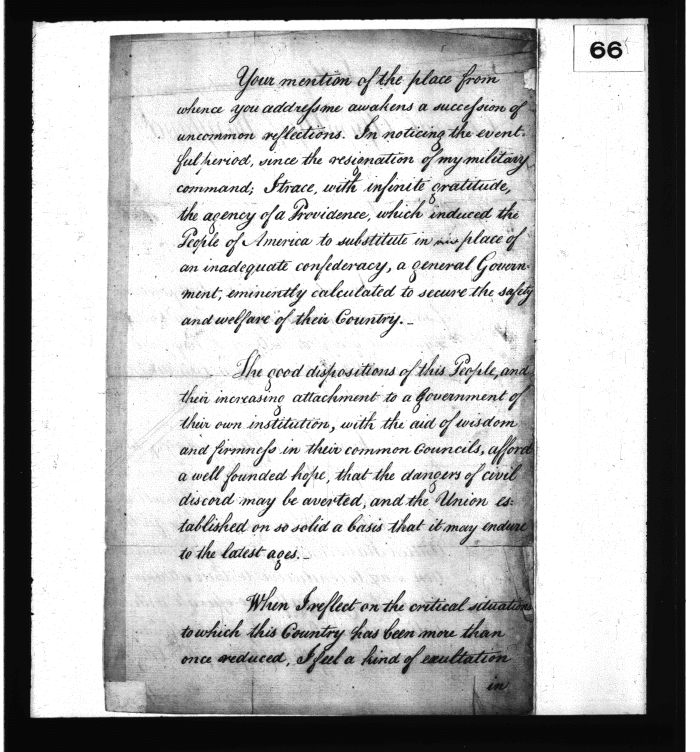 66
Your mention of the place from
whence you address me awakens a succession of
uncommon reflections. In noticing the event-
ful period, since the resignation of my military
command; I trace, with infinite gratitude,
the agency of a Providence, which induced the
People of America to substitute in place of
an inadequate confederacy, a general Govern-
ment, eminently calculated to secure the safety
and welfare of their Country._
The good dispositions of this People, and
their increasing attachment to a Government of
their own institution, with the aid of wisdom
and firmness in their common Councils, afford
a well founded hope, that the dangers of civil
discord may be averted, and the Union es:
tablished on so solid a basis that it may endure
to the latest ages._
When I reflect on the critical situations
to which this Country has been more than
once reduced, I feel a kind of exultation
in